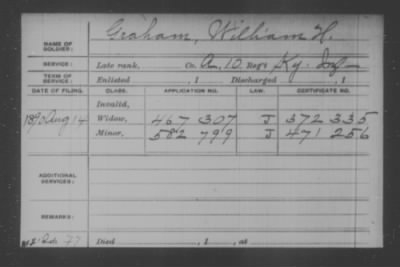 NAME OF SOLDIER: Graham, William H.
SERVICE: Late rank, Co. A, 10 Reg't Ky. Inf
TERM OF SERVICE: Enlisted , 1 Discharged , 1
DATE OF FILING. CLASS. APPLICATION NO. LAW. CERTIFICATE NO.
Invalid,
1890 Aug 14 Widow, 467 307 J 372 335
Minor, 582 799 J 471 256
ADDITIONAL SERVICES:
REMARKS:
Died , 1 , at